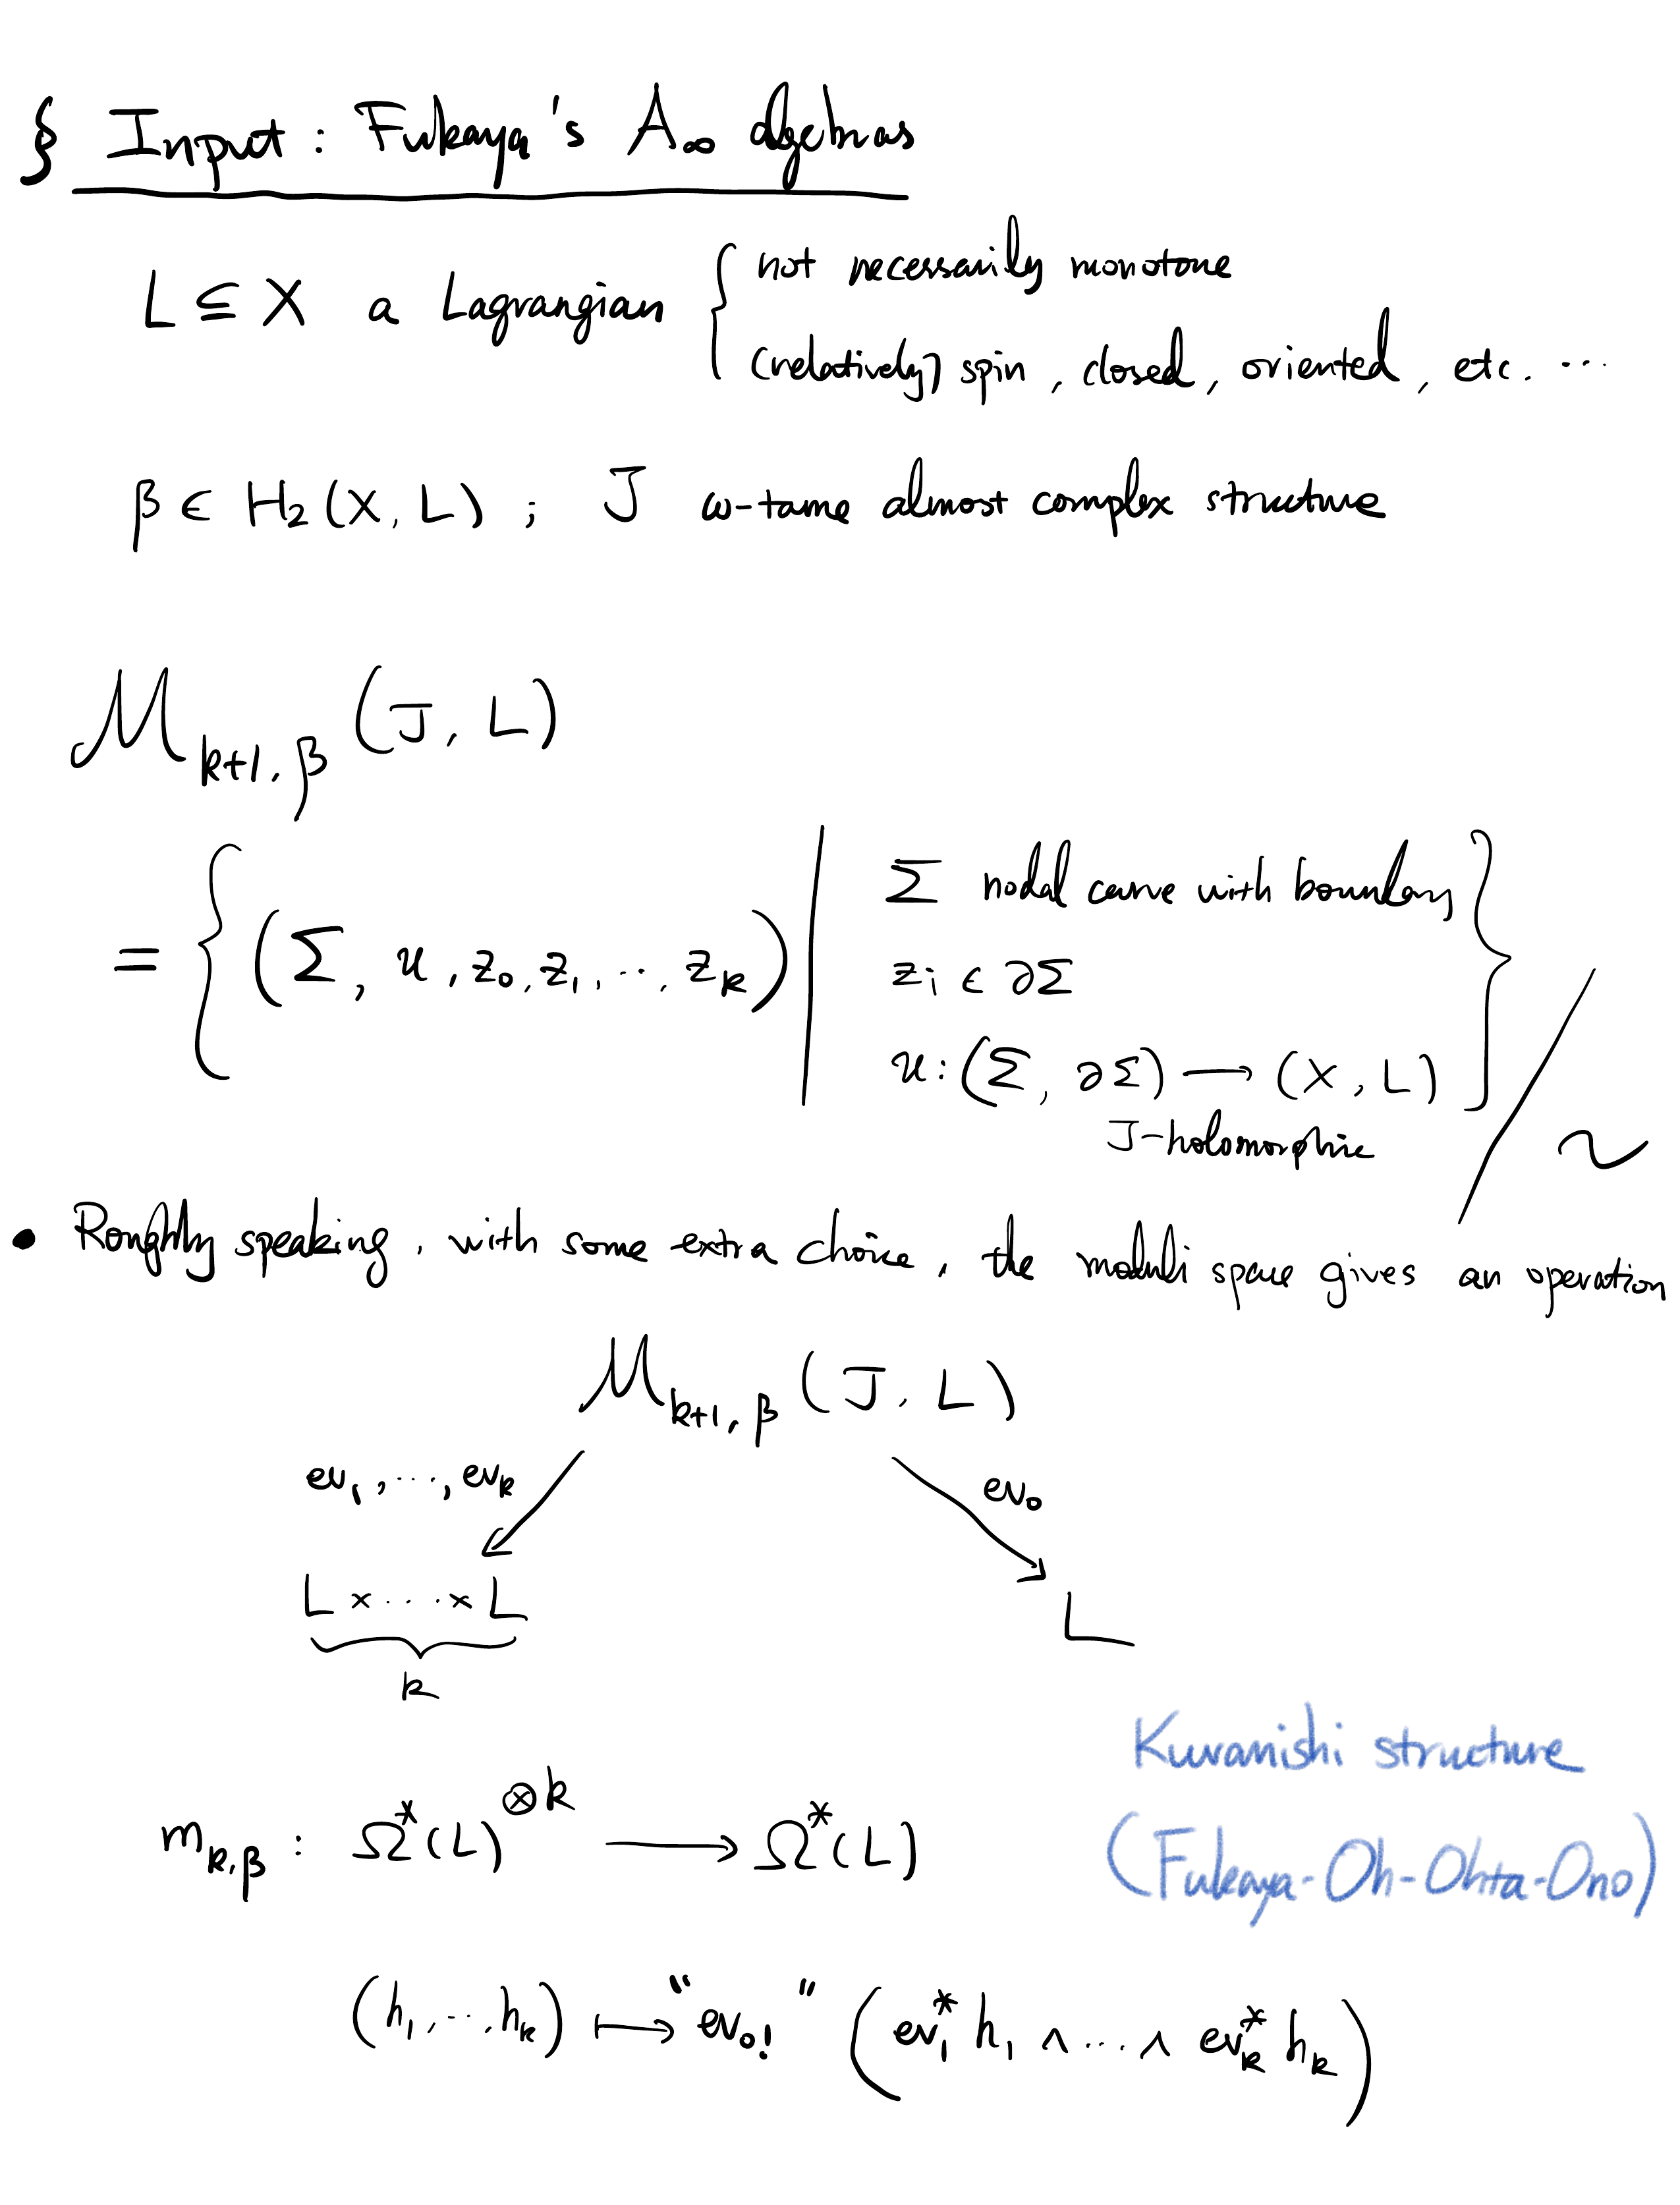 § Input : Fukaya's A∞ algebras
L ⊆ X a Lagrangian { not necessarily monotone
(relatively) spin , closed , oriented , etc. ...
β ∈ H₂(X, L) ; J ω-tame almost complex structure
ℳ_{k+1, β} (J, L)
= { (Σ, u, z₀, z₁, ..., z_k) | Σ nodal curve with boundary
z_i ∈ ∂Σ
u : (Σ, ∂Σ) ⟶ (X, L)
J-holomorphic } / ~
• Roughly speaking, with some extra choice, the moduli space gives an operation
ℳ_{k+1, β} (J, L)
ev₁, ..., ev_k
ev₀
L × ... × L
L
k
Kuranishi structure
m_{k,β} : Ω*(L)^{⊗k} ⟶ Ω*(L)
(Fukaya-Oh-Ohta-Ono)
(h₁, ..., h_k) ⟼ "ev₀!" (ev₁* h₁ ∧ ... ∧ ev_k* h_k)